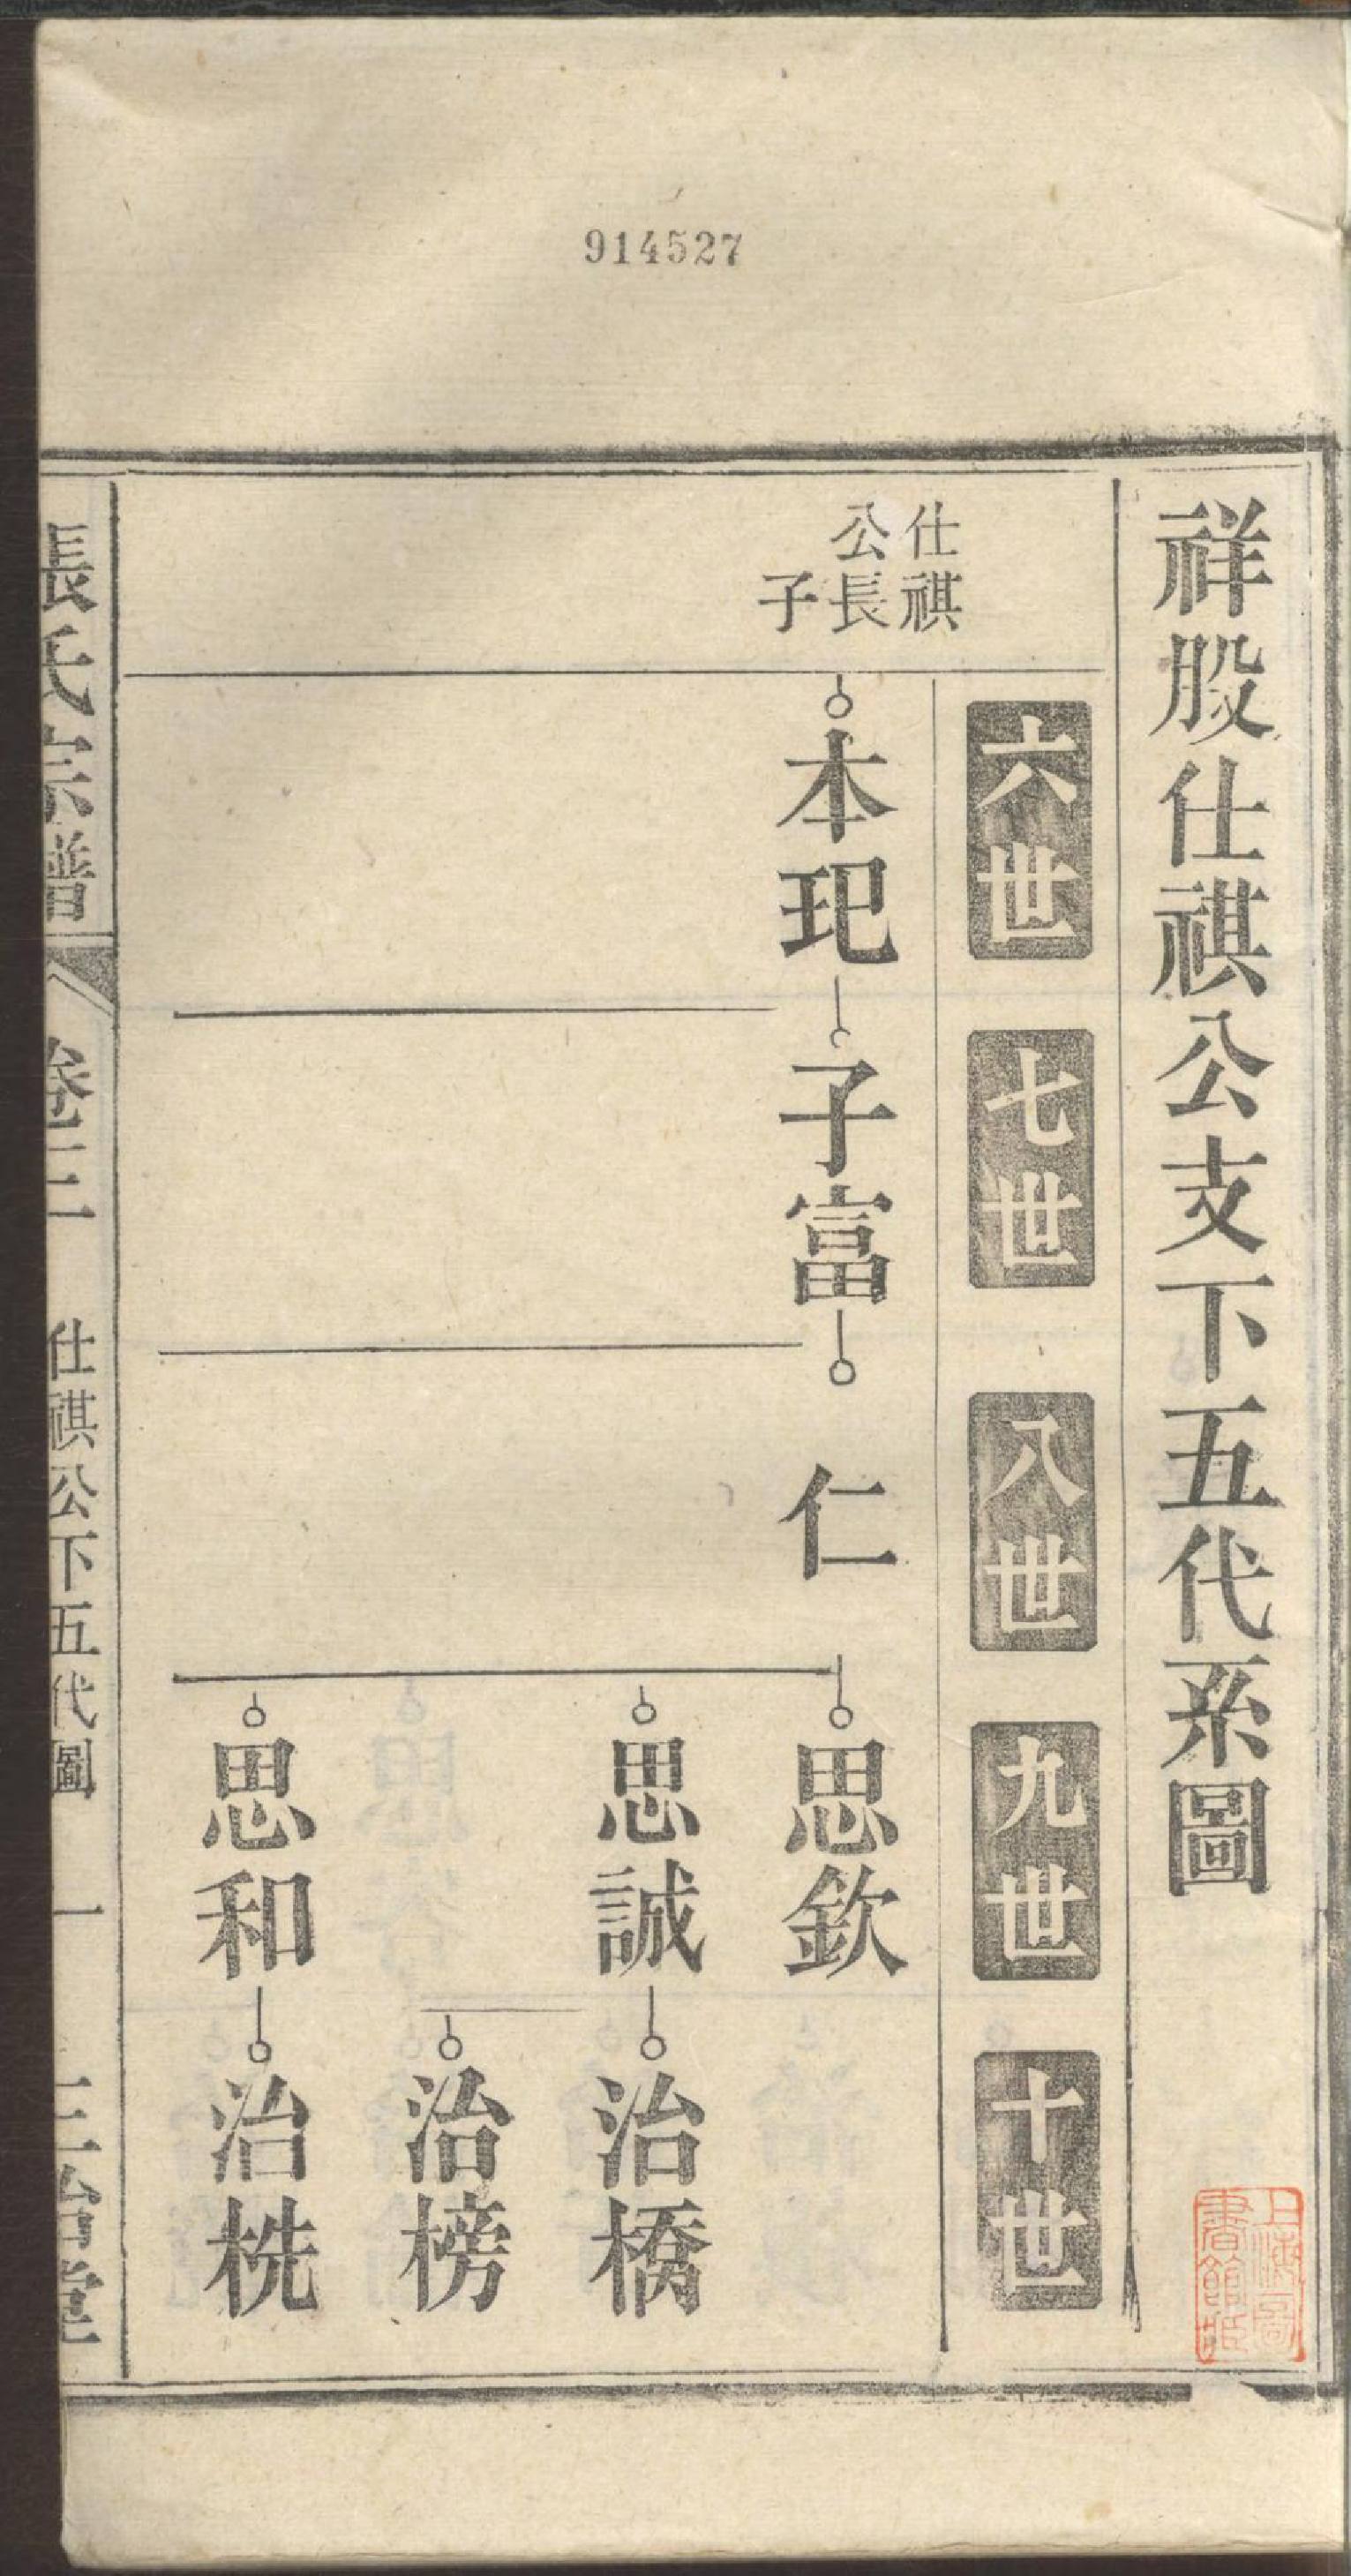 914527
祥股仕祺公支下五代系圖
六世
七世
八世
九世
十世
仕祺
公長
子
本玘
子富
仁
思欽
思誠
治橋
治榜
思和
治桄
張氏宗譜
卷三
仕祺公下五代圖
一
上海圖
書館藏